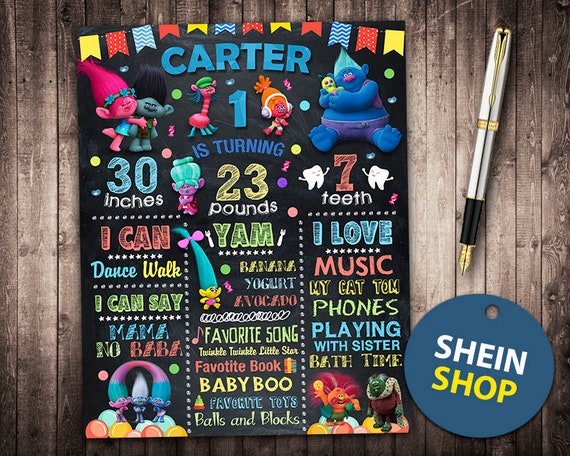 CARTER
1
IS TURNING
30
inches
23
pounds
7
teeth
I CAN
Dance Walk
I CAN SAY
MAMA
NO BABA
YAM
BANANA
YOGURT
AVOCADO
FAVORITE SONG
Twinkle Twinkle Little Star
Favotite Book
BABY BOO
FAVORITE TOYS
Balls and Blocks
I LOVE
MUSIC
MY CAT TOM
PHONES
PLAYING
WITH SISTER
BATH TIME
SHEIN
SHOP